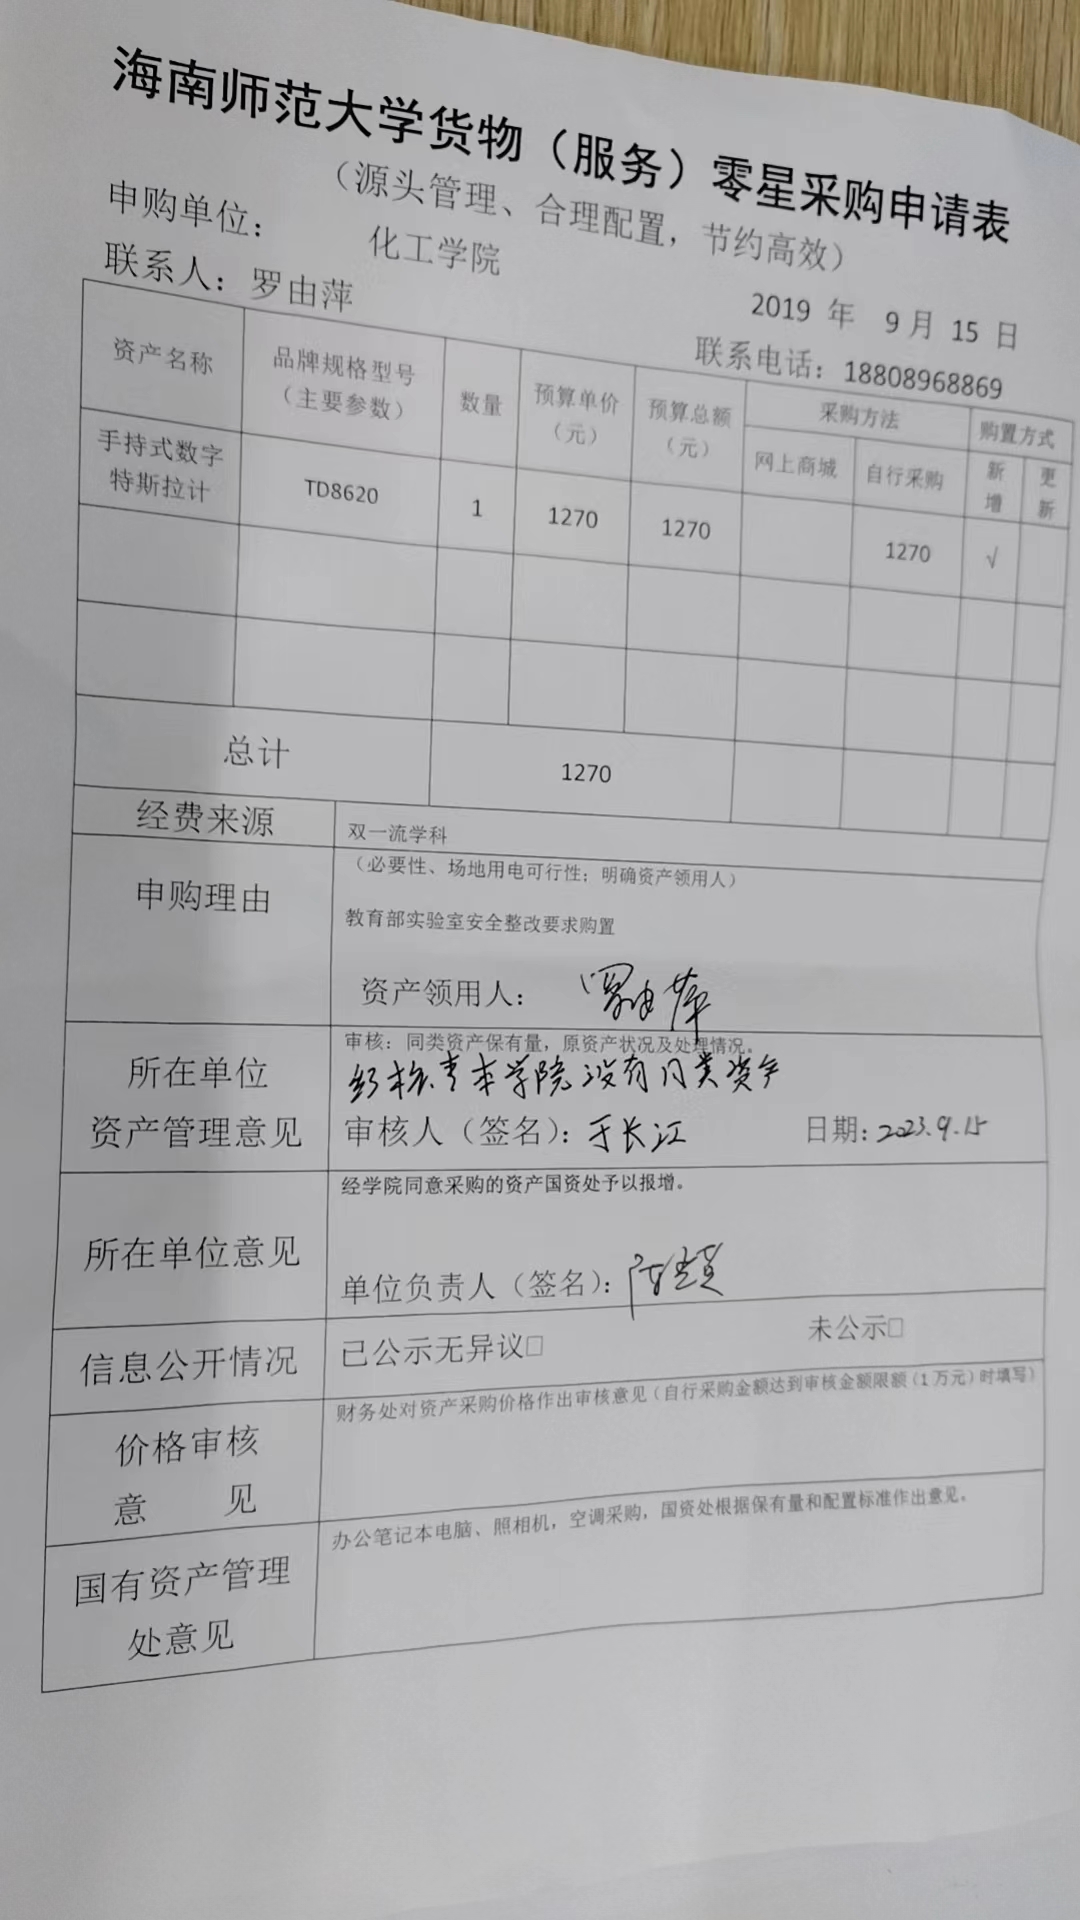 海南师范大学货物（服务）零星采购申请表
（源头管理、合理配置，节约高效）
申购单位： 化工学院
2019 年 9 月 15 日
联系人：罗由萍
联系电话：18808968869
资产名称 品牌规格型号（主要参数） 数量 预算单价（元） 预算总额（元） 采购方法 购置方式
网上商城 自行采购 新增 更新
手持式数字特斯拉计 TD8620 1 1270 1270 1270 √
总计 1270
经费来源 双一流学科
申购理由 （必要性、场地用电可行性；明确资产领用人）
教育部实验室安全整改要求购置
资产领用人： 罗由萍
所在单位资产管理意见
审核：同类资产保有量，原资产状况及处理情况。
经核查本学院没有同类资产
审核人（签名）：于长江 日期：2023.9.15
所在单位意见
经学院同意采购的资产国资处予以报增。
单位负责人（签名）：
信息公开情况 已公示无异议□ 未公示□
价格审核意 见
财务处对资产采购价格作出审核意见（自行采购金额达到审核金额限额（1 万元）时填写）
国有资产管理处意见
办公笔记本电脑、照相机，空调采购，国资处根据保有量和配置标准作出意见。